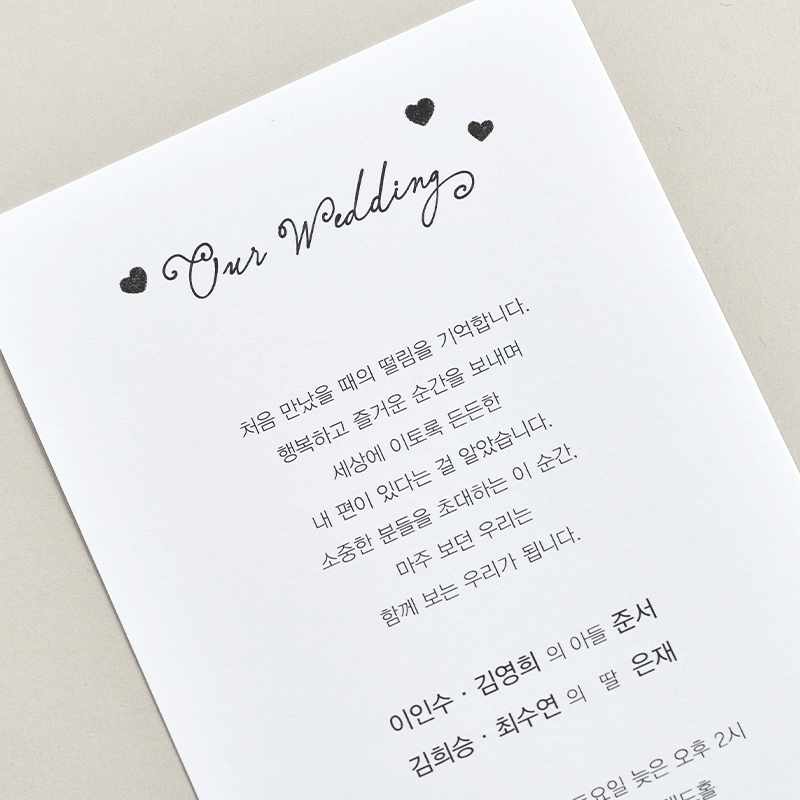 Our Wedding
처음 만났을 때의 떨림을 기억합니다.
행복하고 즐거운 순간을 보내며
세상에 이토록 든든한
내 편이 있다는 걸 알았습니다.
소중한 분들을 초대하는 이 순간,
마주 보던 우리는
함께 보는 우리가 됩니다.
이인수 · 김영희 의 아들 준서
김희승 · 최수연 의 딸 은재
늦은 오후 2시